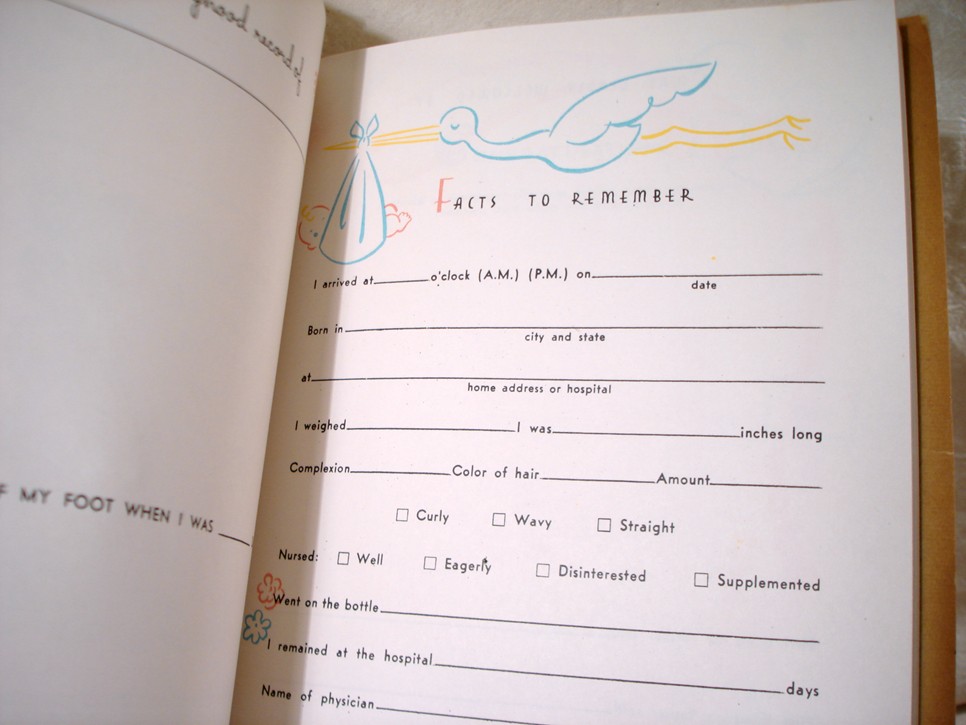 MY FOOT WHEN I WAS
FACTS TO REMEMBER
I arrived at______o'clock (A.M.) (P.M.) on______
date
Born in______
city and state
at______
home address or hospital
I weighed______I was______inches long
Complexion______Color of hair______Amount______
☐ Curly ☐ Wavy ☐ Straight
Nursed: ☐ Well ☐ Eagerly ☐ Disinterested ☐ Supplemented
Went on the bottle______
I remained at the hospital______days
Name of physician______